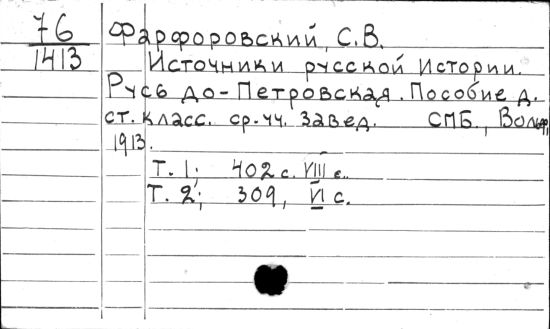 76
1413
Фарфоровский, С.В.
Источники русской Истории.
Русь до-Петровская. Пособие д.
ст. класс. ср.-уч. завед. СПБ., Вольф,
1913.
Т. 1; 402 с. VIII с.
Т. 2; 309, VI с.